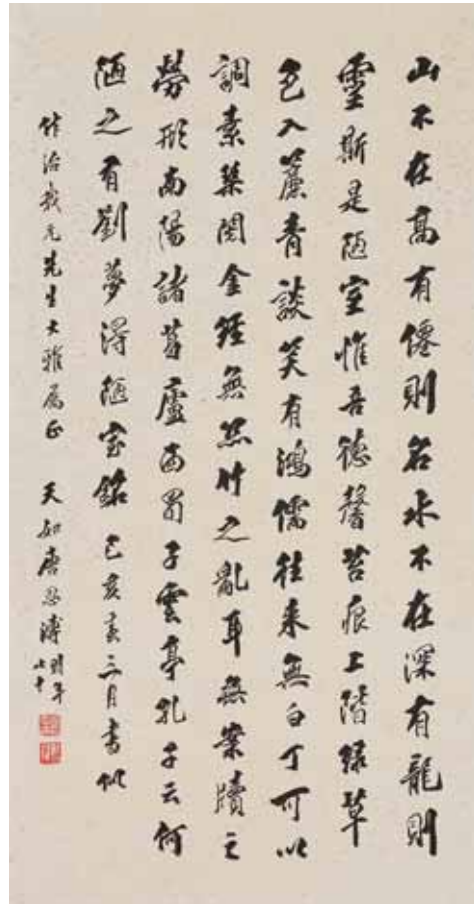 山不在高有僊則名水不在深有龍則
靈斯是陋室惟吾德馨苔痕上階綠草
色入簾青談笑有鴻儒往來無白丁可以
調素琴閱金經無絲竹之亂耳無案牘之
勞形南陽諸葛廬西蜀子雲亭孔子云何
陋之有劉夢得陋室銘己亥三月書似
治我先生大雅屬正 天如唐恩溥時年七十